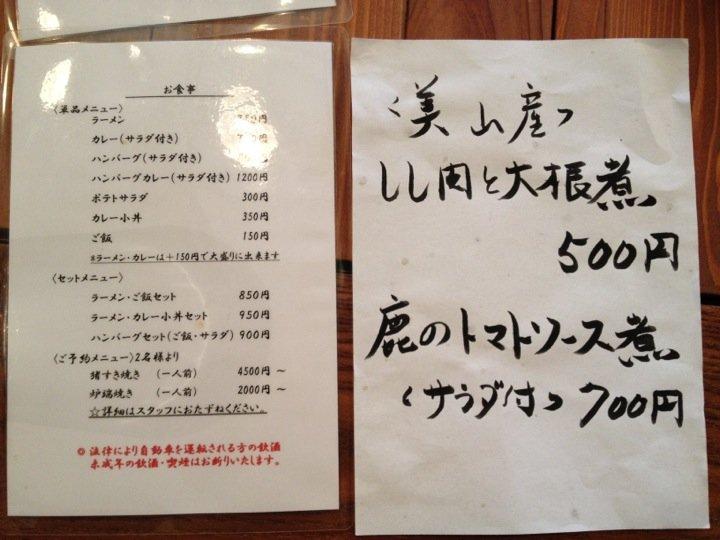 お食事
〈単品メニュー〉
ラーメン
カレー(サラダ付き)
ハンバーグ(サラダ付き)
ハンバーグカレー(サラダ付き) 1200円
ポテトサラダ 300円
カレー小丼 350円
ご飯 150円
※ラーメン・カレーは+150円で大盛りに出来ます
〈セットメニュー〉
ラーメン・ご飯セット 850円
ラーメン・カレー小丼セット 950円
ハンバーグセット(ご飯・サラダ) 900円
〈ご予約メニュー〉2名様より
猪すき焼き (一人前) 4500円~
炉端焼き (一人前) 2000円~
☆詳細はスタッフにおたずねください。
◎法律により自動車を運転される方の飲酒
未成年の飲酒・喫煙はお断りいたします。
〈美山産〉
しし肉と大根煮
500円
鹿のトマトソース煮
〈サラダ付〉 700円